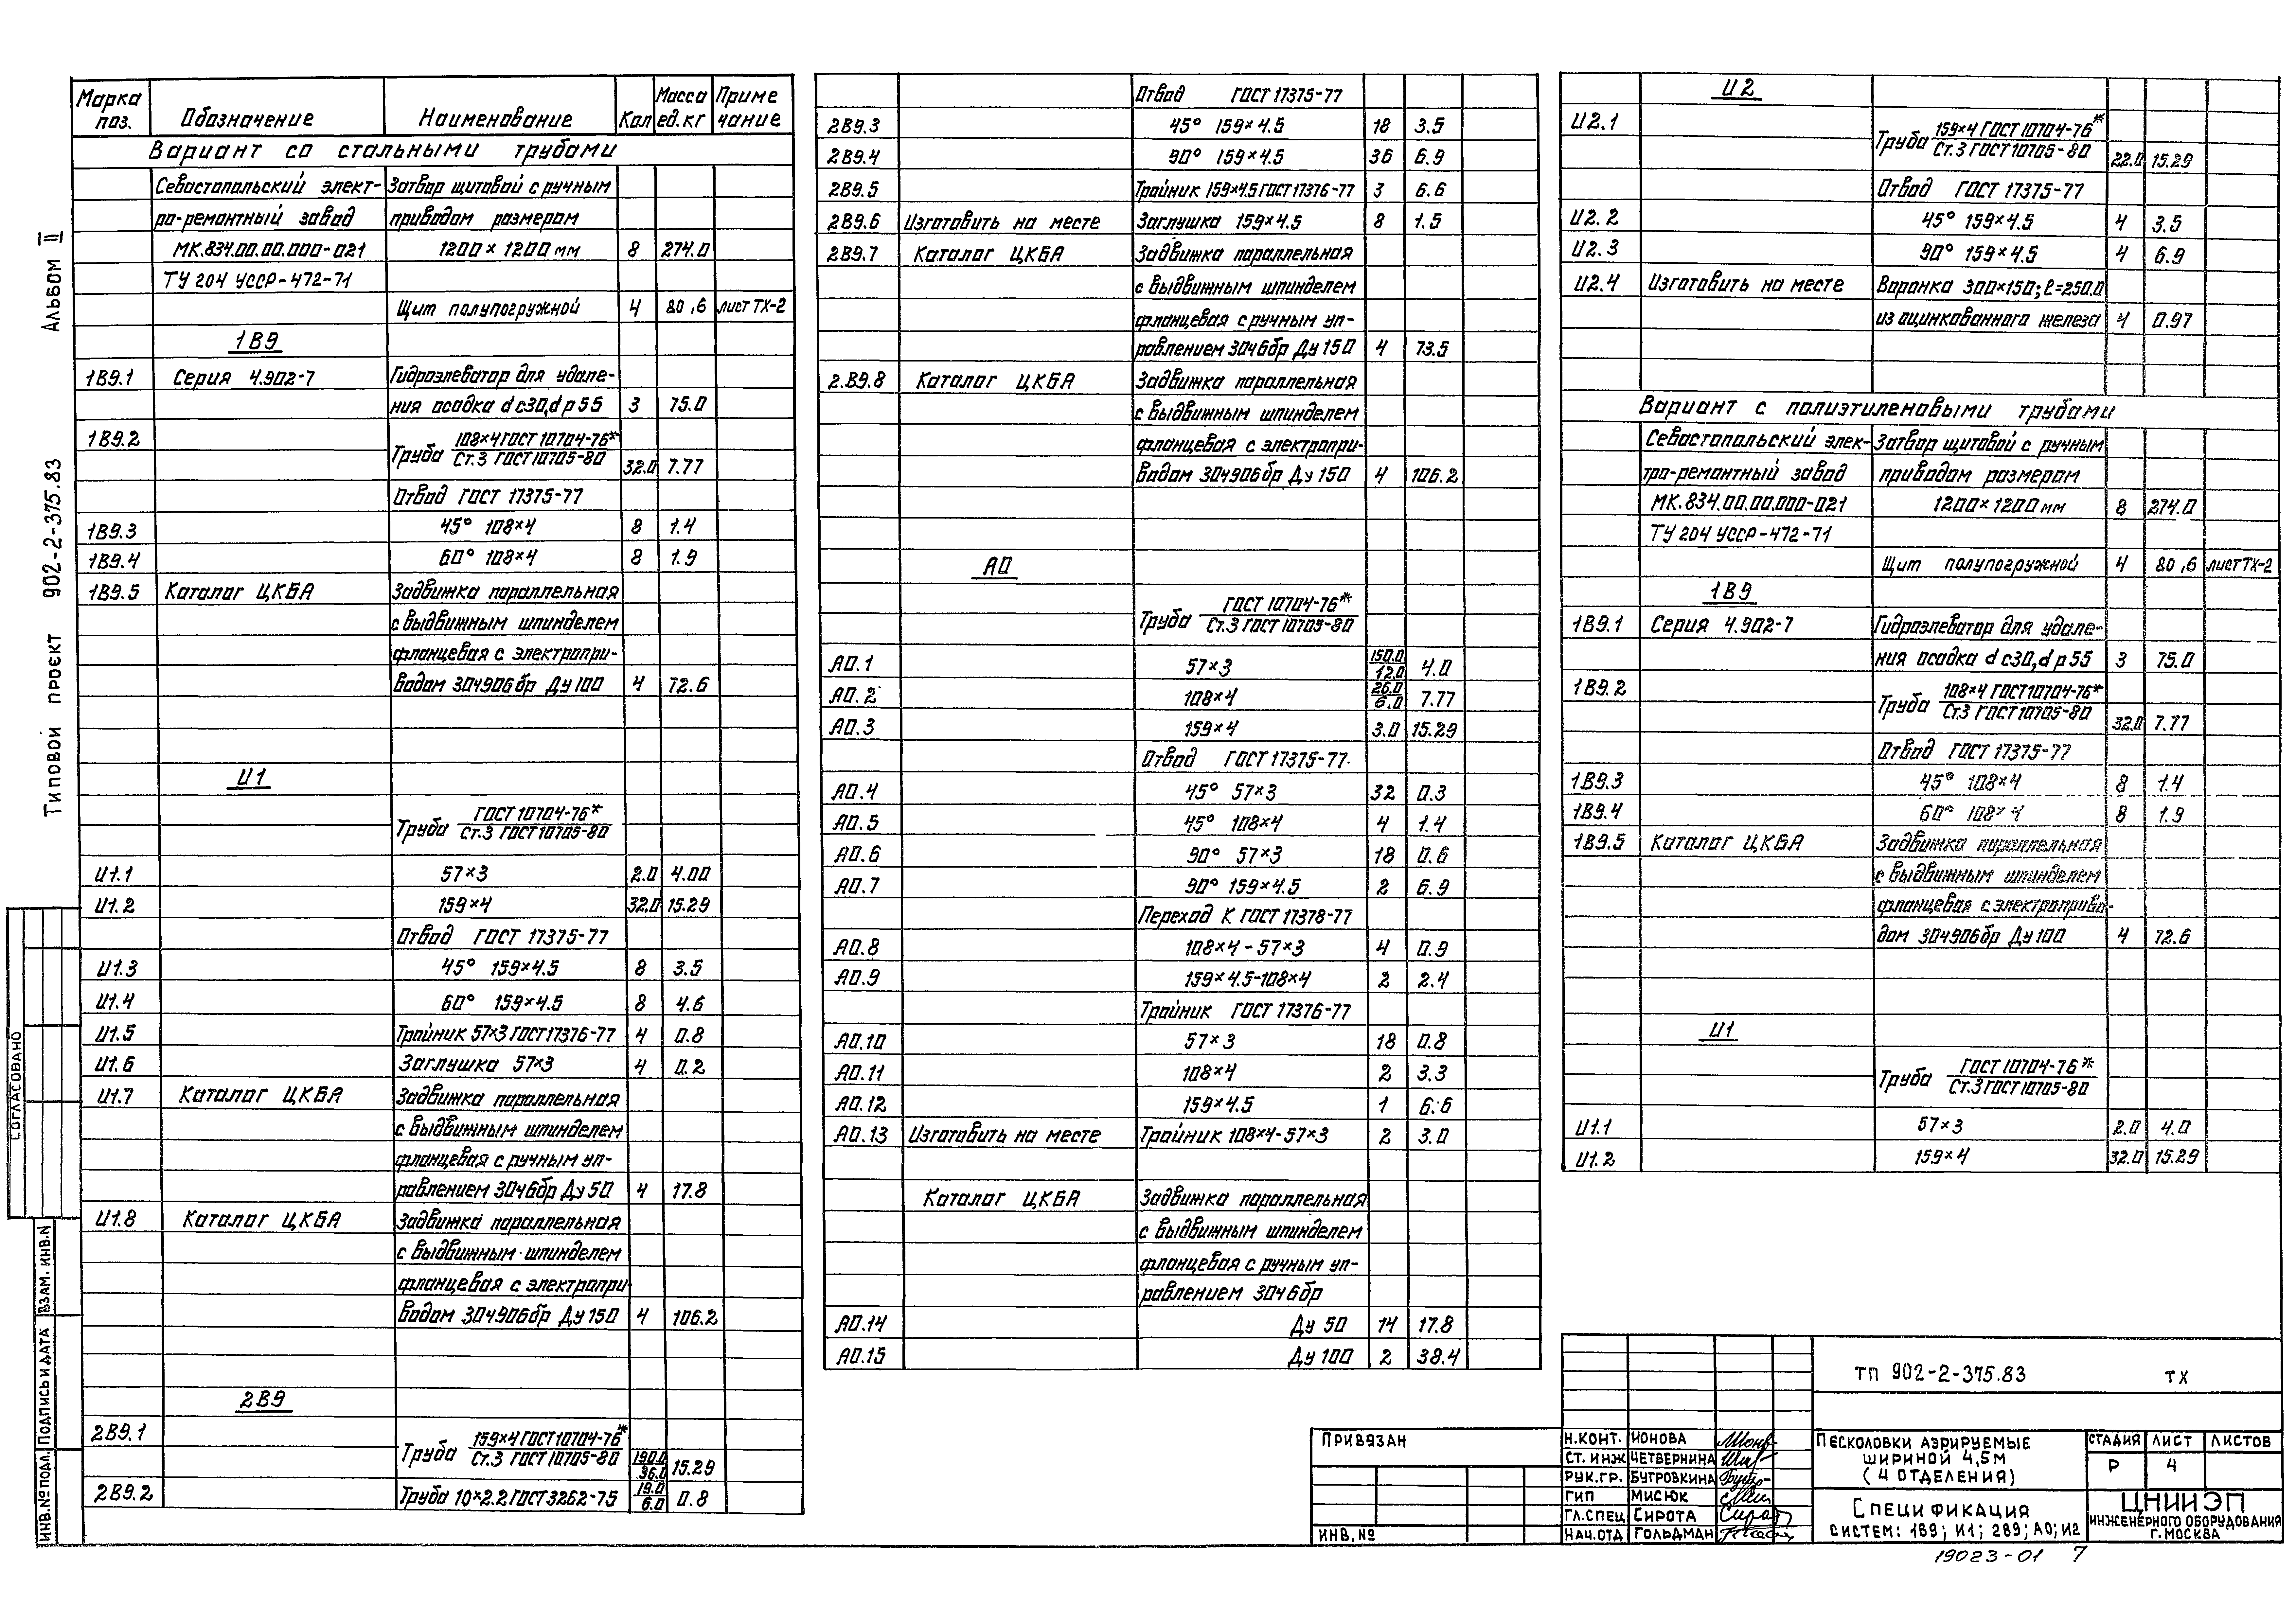 Альбом II
Типовой проект 902-2-375.83
СОГЛАСОВАНО
ВЗАМ. ИНВ.N
ПОДПИСЬ И ДАТА
ИНВ.№ ПОДЛ.
Марка поз. Обозначение Наименование Кол Масса ед.кг Приме чание
Вариант со стальными трубами
Севастопольский элект- Затвор щитовой с ручным
ро-ремонтный завод приводом размером
МК.834.00.00.000-021 1200×1200 мм 8 274.0
ТУ 204 УССР-472-71
Щит полупогружной 4 80,6 лист ТХ-2
1В9
1В9.1 Серия 4.902-7 Гидроэлеватор для удале-
ния осадка dc30,dp55 3 75.0
1В9.2 Труба 108×4 ГОСТ 10704-76* / Ст.3 ГОСТ 10705-80 32.0 7.77
Отвод ГОСТ 17375-77
1В9.3 45° 108×4 8 1.4
1В9.4 60° 108×4 8 1.9
1В9.5 Каталог ЦКБА Задвижка параллельная
с выдвижным шпинделем
фланцевая с электропри-
водом 30ч906бр Ду 100 4 72.6
И1
Труба ГОСТ 10704-76* / Ст.3 ГОСТ 10705-80
И1.1 57×3 2.0 4.00
И1.2 159×4 32.0 15.29
Отвод ГОСТ 17375-77
И1.3 45° 159×4.5 8 3.5
И1.4 60° 159×4.5 8 4.6
И1.5 Тройник 57×3 ГОСТ 17376-77 4 0.8
И1.6 Заглушка 57×3 4 0.2
И1.7 Каталог ЦКБА Задвижка параллельная
с выдвижным шпинделем
фланцевая с ручным уп-
равлением 30ч6бр Ду 50 4 17.8
И1.8 Каталог ЦКБА Задвижка параллельная
с выдвижным шпинделем
фланцевая с электропри
водом 30ч906бр Ду 150 4 106.2
2В9
2В9.1 Труба 159×4 ГОСТ 10704-76* / Ст.3 ГОСТ 10705-80 190.0/36.0 15.29
2В9.2 Труба 10×2.2 ГОСТ 3262-75 19.0/6.0 0.8
Отвод ГОСТ 17375-77
2В9.3 45° 159×4.5 18 3.5
2В9.4 90° 159×4.5 36 6.9
2В9.5 Тройник 159×4.5 ГОСТ 17376-77 3 6.6
2В9.6 Изготовить на месте Заглушка 159×4.5 8 1.5
2В9.7 Каталог ЦКБА Задвижка параллельная
с выдвижным шпинделем
фланцевая с ручным уп-
равлением 30ч6бр Ду 150 4 73.5
2.В9.8 Каталог ЦКБА Задвижка параллельная
с выдвижным шпинделем
фланцевая с электропри-
водом 30ч906бр Ду 150 4 106.2
АО
Труба ГОСТ 10704-76* / Ст.3 ГОСТ 10705-80
АО.1 57×3 150.0/12.0 4.0
АО.2 108×4 26.0/6.0 7.77
АО.3 159×4 3.0 15.29
Отвод ГОСТ 17375-77
АО.4 45° 57×3 32 0.3
АО.5 45° 108×4 4 1.4
АО.6 90° 57×3 18 0.6
АО.7 90° 159×4.5 2 6.9
Переход К ГОСТ 17378-77
АО.8 108×4-57×3 4 0.9
АО.9 159×4.5-108×4 2 2.4
Тройник ГОСТ 17376-77
АО.10 57×3 18 0.8
АО.11 108×4 2 3.3
АО.12 159×4.5 1 6.6
АО.13 Изготовить на месте Тройник 108×4-57×3 2 3.0
Каталог ЦКБА Задвижка параллельная
с выдвижным шпинделем
фланцевая с ручным уп-
равлением 30ч6бр
АО.14 Ду 50 14 17.8
АО.15 Ду 100 2 38.4
И2
И2.1 Труба 159×4 ГОСТ 10704-76* / Ст.3 ГОСТ 10705-80 22.0 15.29
Отвод ГОСТ 17375-77
И2.2 45° 159×4.5 4 3.5
И2.3 90° 159×4.5 4 6.9
И2.4 Изготовить на месте Воронка 300×150; ℓ=250.0
из оцинкованного железа 4 0.97
Вариант с полиэтиленовыми трубами
Севастопольский элек- Затвор щитовой с ручным
тро-ремонтный завод приводом размером
МК.834.00.00.000-021 1200×1200 мм 8 274.0
ТУ 204 УССР-472-71
Щит полупогружной 4 80,6 лист ТХ-2
1В9
1В9.1 Серия 4.902-7 Гидроэлеватор для удале-
ния осадка dc30,dp55 3 75.0
1В9.2 Труба 108×4 ГОСТ 10704-76* / Ст.3 ГОСТ 10705-80 32.0 7.77
Отвод ГОСТ 17375-77
1В9.3 45° 108×4 8 1.4
1В9.4 60° 108×4 8 1.9
1В9.5 Каталог ЦКБА Задвижка параллельная
с выдвижным шпинделем
фланцевая с электроприво-
дом 30ч906бр Ду 100 4 72.6
И1
Труба ГОСТ 10704-76* / Ст.3 ГОСТ 10705-80
И1.1 57×3 2.0 4.0
И1.2 159×4 32.0 15.29
ПРИВЯЗАН
ИНВ.№
ТП 902-2-375.83 ТХ
Н.КОНТ. ИОНОВА
СТ. ИНЖ ЧЕТВЕРНИНА
РУК.ГР. БУГРОВКИНА
ГИП МИСЮК
ГЛ.СПЕЦ СИРОТА
НАЧ.ОТД ГОЛЬДМАН
ПЕСКОЛОВКИ АЭРИРУЕМЫЕ
ШИРИНОЙ 4,5М
(4 ОТДЕЛЕНИЯ)
СТАДИЯ ЛИСТ ЛИСТОВ
Р 4
СПЕЦИФИКАЦИЯ
СИСТЕМ: 1В9; И1; 2В9; АО; И2
ЦНИИЭП
ИНЖЕНЕРНОГО ОБОРУДОВАНИЯ
Г. МОСКВА
19023-01 7